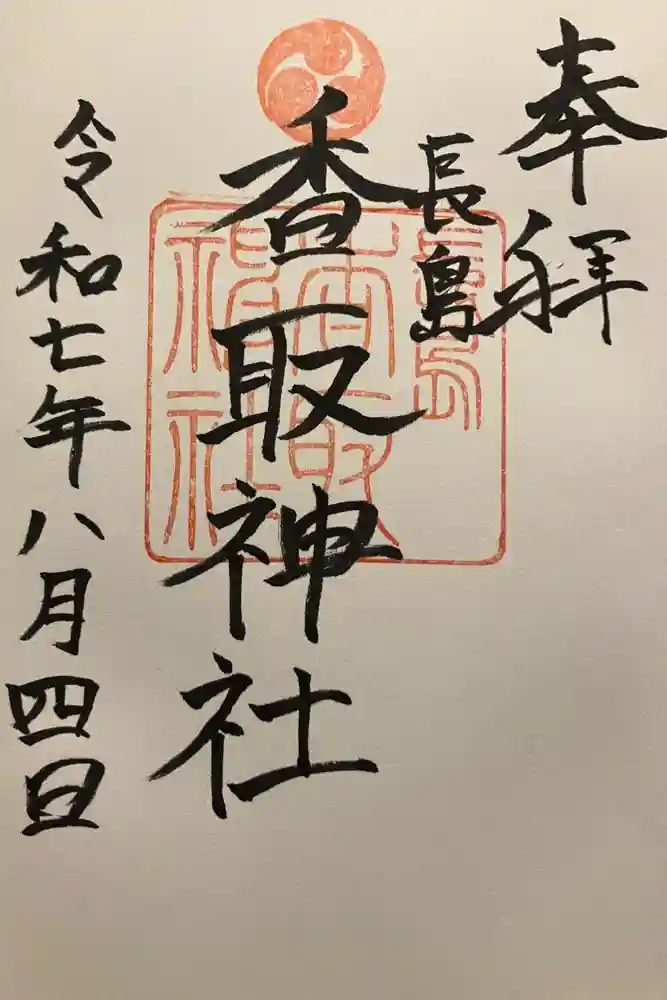 奉拝
長島
香取神社
令和七年八月四日
長島
香取
神社